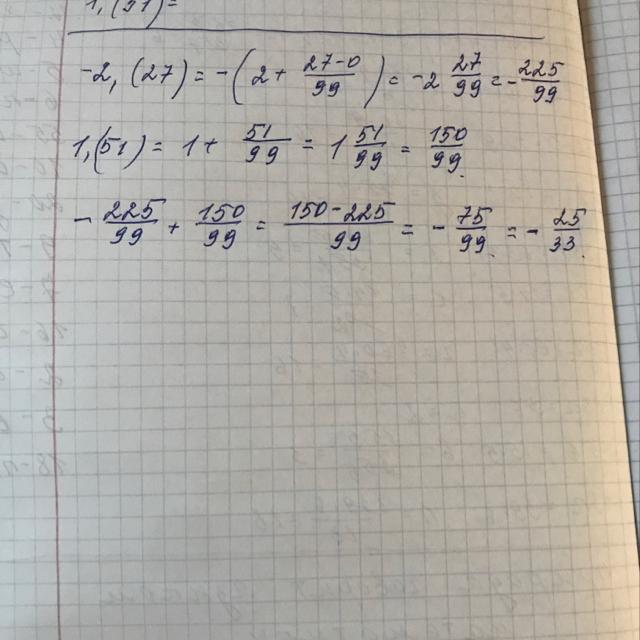 1,(51)=
-2,(27) = -(2 + 27-0/99) = -2 27/99 = -225/99
1,(51) = 1 + 51/99 = 1 51/99 = 150/99.
- 225/99 + 150/99 = 150-225/99 = - 75/99. = - 25/33.